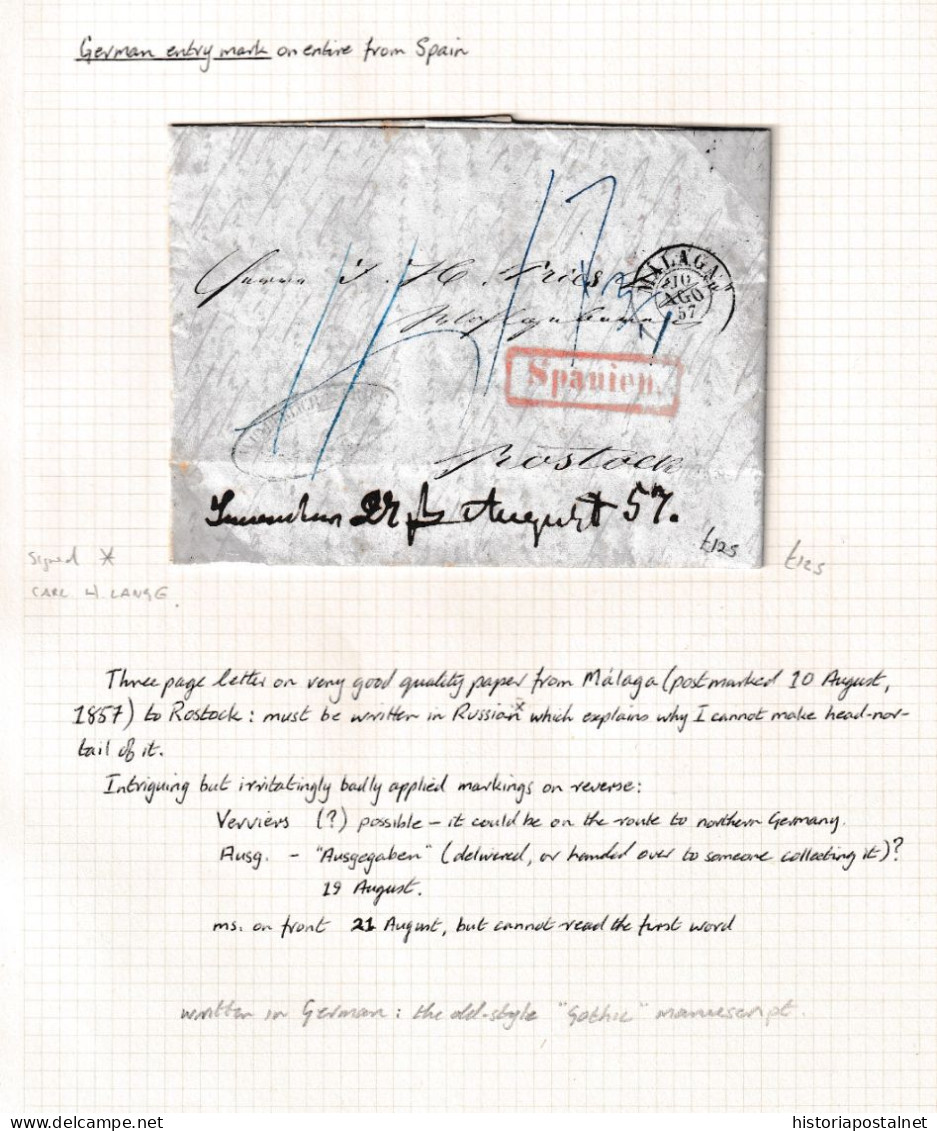 German entry mark on entire from Spain
J. H. Fries
MÁLAGA
10
AGO
57
Spanien.
Rostock
August 57.
£125
signed *
£125
CARL H. LANGE.
Three page letter on very good quality paper from Málaga (postmarked 10 August,
1857) to Rostock: must be written in Russian* which explains why I cannot make head-nor-
tail of it.
Intriguing but irritatingly badly applied markings on reverse:
Verviers (?) possible - it could be on the route to northern Germany.
Ausg. - "Ausgegaben" (delivered, or handed over to someone collecting it)?
19 August.
ms. on front 21 August, but cannot read the first word
written in German: the old-style "Gothic" manuscript.
historiapostalnet